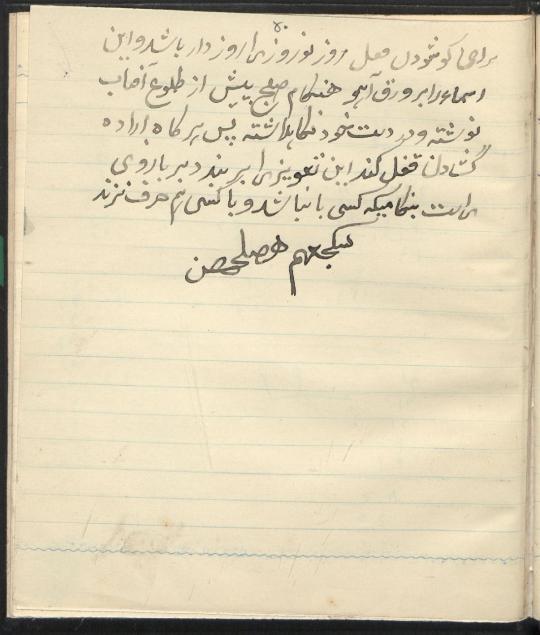 ۴۰
برای کوشودن قفل روز نوروز را روزدار باشد و این
اسماء را بر ورق آهو هنگام صبح پیش از طلوع آفتاب
نوشته و در دست خود نگاهداشته پس هر گاه اراده
گشادن قفل کند این تعویز را بر بندد بر باروی
راست بنگامیکه کسی با نباشد و با کسی هم حرف نزند